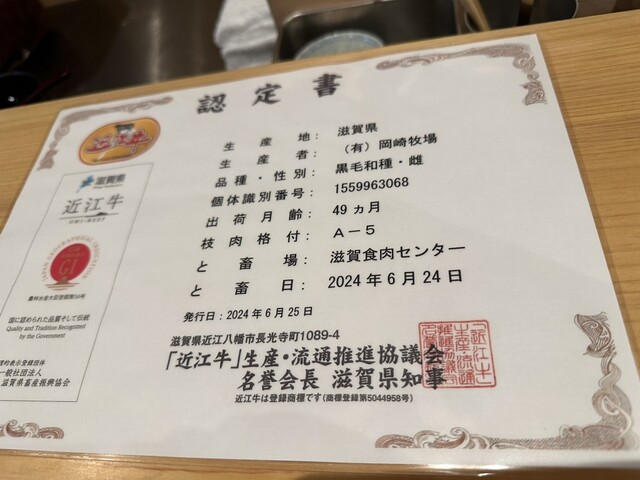 認定書
近江牛
滋賀県
近江牛
GI
農林水産大臣登録第56号
国に認められた品質そして伝統
Quality and Tradition Recognized
by the Government
一般社団法人
滋賀県畜産振興協会
生産地：滋賀県
生産者：（有）岡崎牧場
品種・性別：黒毛和種・雌
個体識別番号：1559963068
出荷月齢：49ヵ月
枝肉格付：A－5
と畜場：滋賀食肉センター
と畜日：2024年6月24日
発行日：2024年6月25日
滋賀県近江八幡市長光寺町1089-4
「近江牛」生産・流通推進協議会
名誉会長 滋賀県知事
近江牛は登録商標です（商標登録第5044958号）